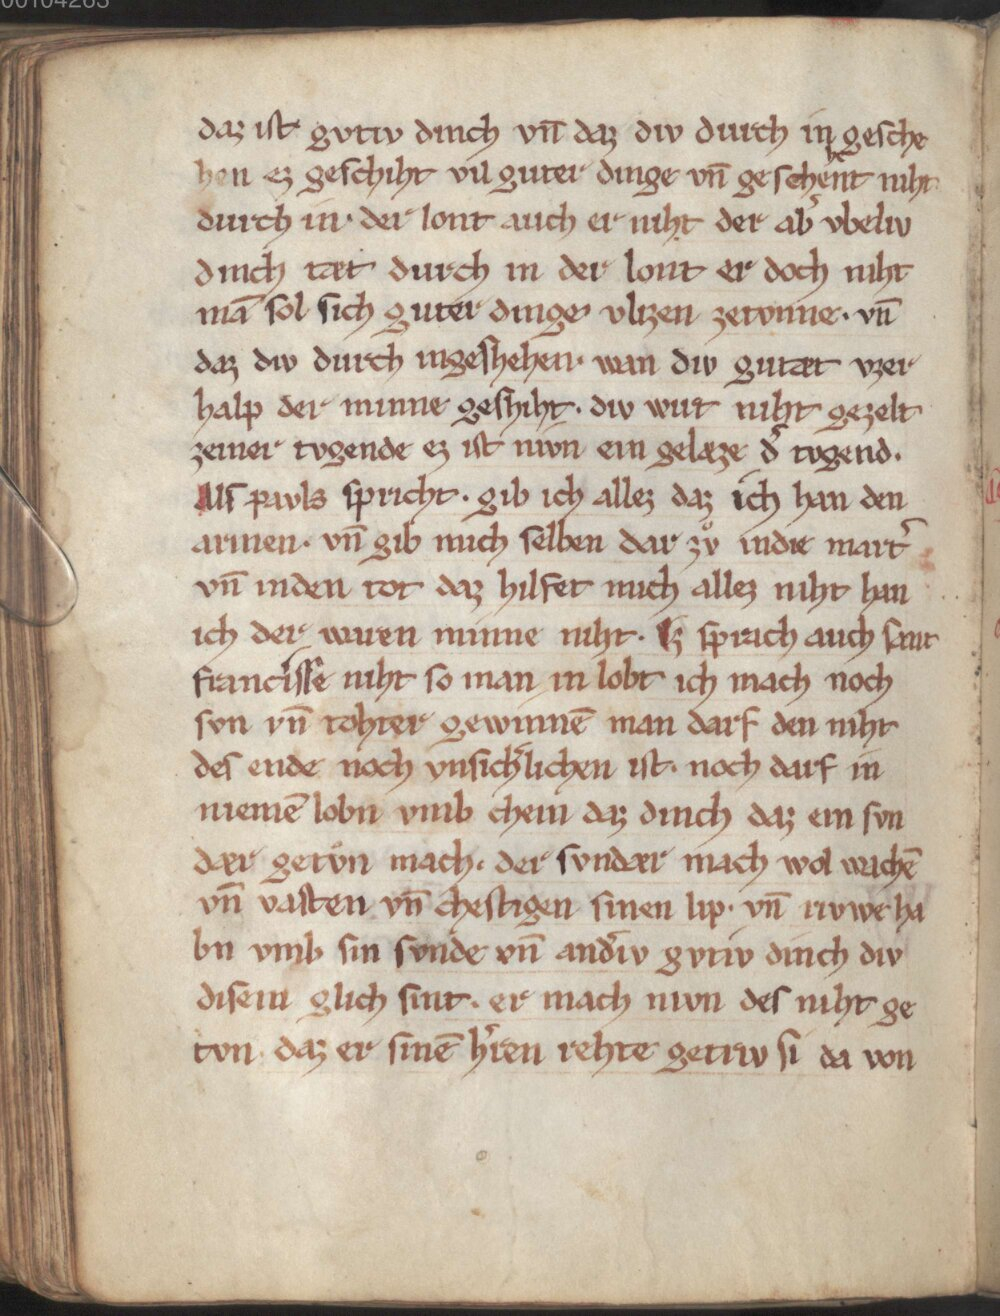 00104263
daz ist gvtiv dinch vn̄ daz div durch in gesche
hen ez geschiht vil guter dinge vn̄ geschehent niht
durch in· der lont auch er niht der ab͛ vbeliv
dinch tæt durch in der lont er doch niht
mā sol sich guter dinge vlizen zetvnne· vn̄
daz div durch ingeshehen· wan div gutæt vzer
halp der minne geshiht· div wirt niht gezelt
zeiner tvgende ez ist nivn ein gelæze d͛ tvgend·
Als pavls spricht· gib ich allez daz ich han den
armen· vn̄ gib mich selben dar zvͦ indie mart͛
vn̄ inden tot daz hilfet mich allez niht han
ich der waren minne niht· Ez sprach auch sant
francisse niht so man in lobt ich mach noch
svn vn̄ tohter gewinnē man darf den niht
des ende noch vnsich͛lichen ist· noch darf in
niemē lobn vmb chein daz dinch daz ein svn
dær getvͦn mach· der svndær mach wol wachē
vn̄ vasten vn̄ chestigen sinen lip· vn̄ rivwe ha
bn vmb sin svnde vn̄ and͛iv gvtiv dinch div
disem glich sint· er mach nivn des niht ge
tvn daz er sinē h͛ren rehte getriv si da von